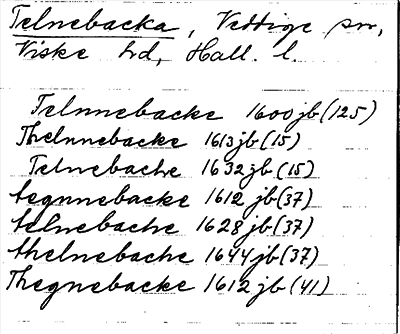 Telnebacka, Veddige sn,
Viske hd, Hall. l.
Telnnebacke 1600 jb (125)
Thelnnebacke 1613 jb (15)
Telnebache 1632 jb (15)
tegnnebacke 1612 jb (37)
telnebache 1628 jb (37)
thelnebache 1644 jb (37)
Thegnebacke 1612 jb (41)